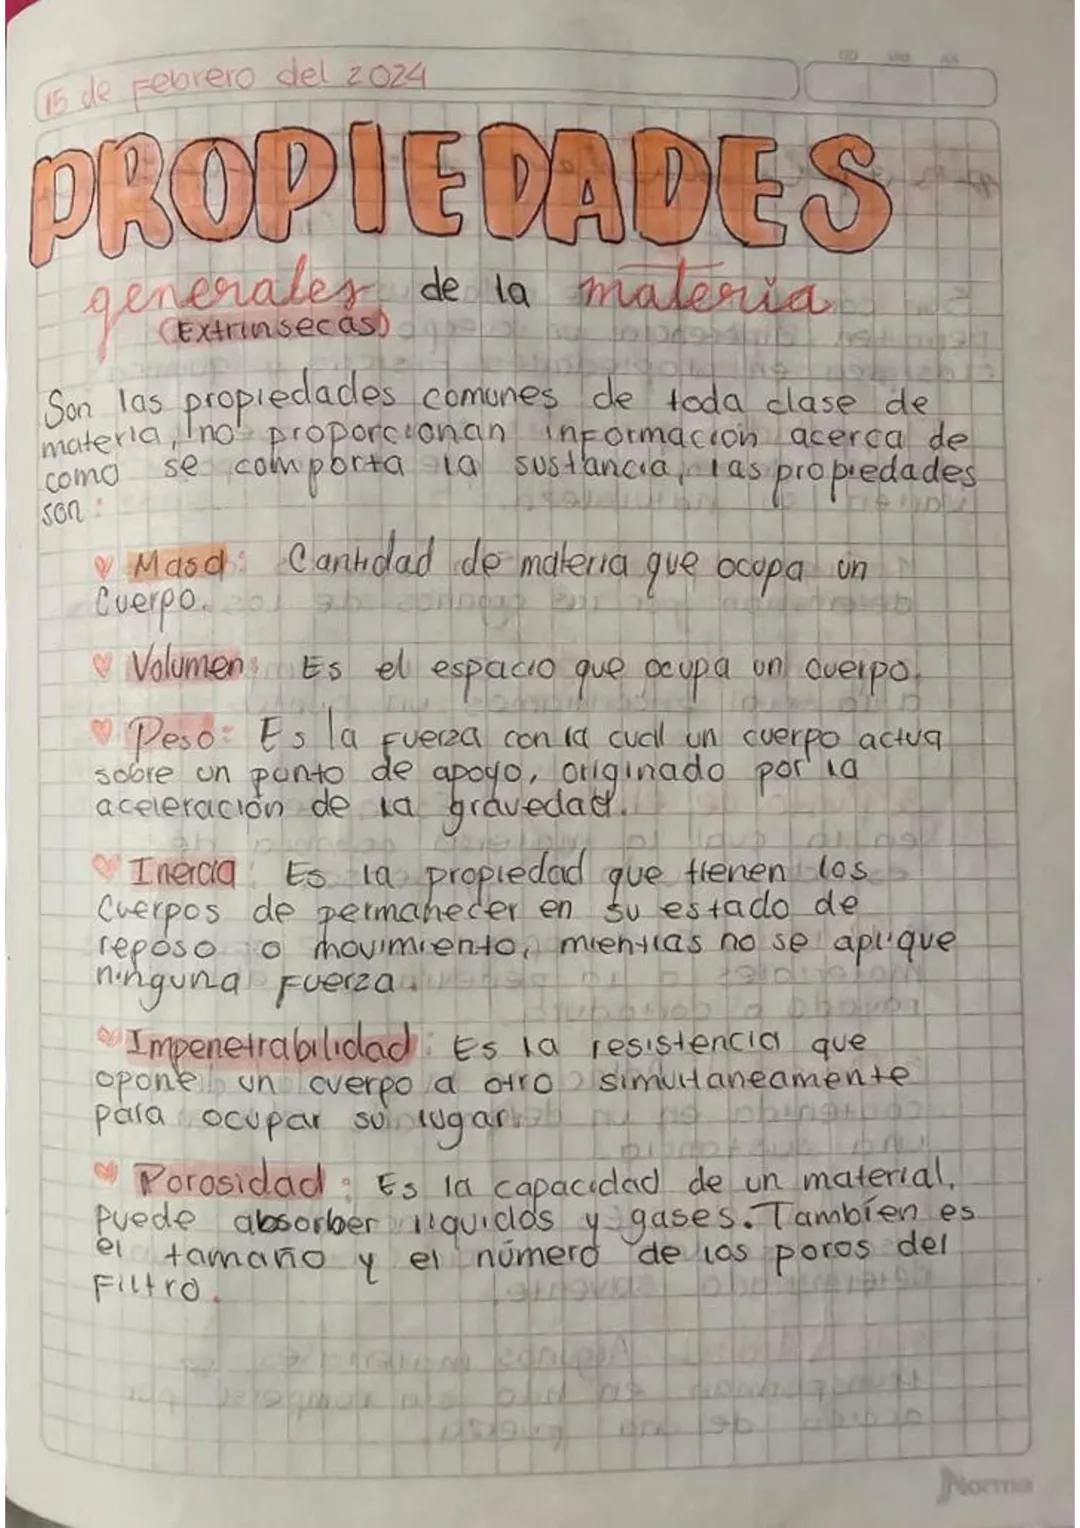 15 de Febrero del 2024
PROPIEDADES
generales de la materia
(Extrinsecas)
Son las propiedades comunes de toda clase de
materia, no proporcionan información acerca de
como se comporta la sustancia, las propiedades
son:
Masa: Cantidad de materia que ocupa un
Cuerpo.
Volumen: Es el espacio que ocupa un cuerpo.
Peso: Es la fuerza con la cual un cuerpo actua
sobre un punto de apoyo, originado por la
aceleración de la gravedad.
Inercia: Es la propiedad que tienen los
Cuerpos de permanecer en su estado de
reposo o movimiento, mientras no se aplique
ninguna fuerza.
Impenetrabilidad: Es la resistencia que
opone un cuerpo a otro simultaneamente
para ocupar su lugar.
Porosidad: Es la capacidad de un material,
puede absorber liquidos y gases. Tambien es
el tamaño y el número de los poros del
Filtro.
Norma